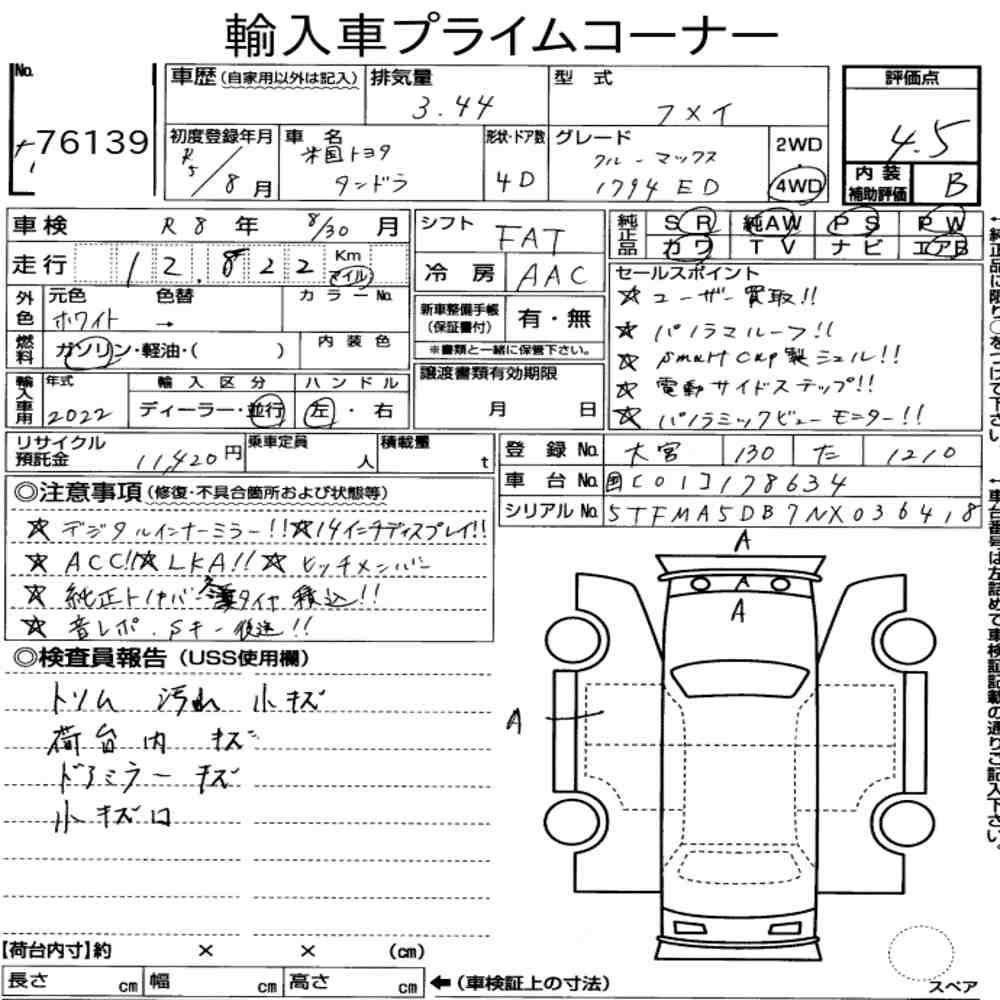 輸入車プライムコーナー
No. 76139
車歴(自家用以外は記入) 排気量 3.44 型式 フメイ 評価点 4.5
初度登録年月 R5/8月 車名 米国トヨタ タンドラ 形状・ドア数 4D グレード クルーマックス 1794 ED 2WD 4WD
内装補助評価 B
車検 R8年 8/30月
走行 12,822 Km マイル
シフト FAT
冷房 AAC
純正品 SR 純AW PS PW
カワ TV ナビ エアB
外色 元色 ホワイト 色替 → カラーNo.
燃料 ガソリン・軽油・( ) 内装色
新車整備手帳(保証書付) 有・無
※書類と一緒に保管下さい。
輸入車用 年式 2022 輸入区分 ディーラー・並行 ハンドル 左・右
譲渡書類有効期限 月 日
セールスポイント
☆ユーザー買取!!
☆パノラマルーフ!!
☆smart cap製シェル!!
☆電動サイドステップ!!
☆パノラミックビューモニター!!
リサイクル預託金 11,420円 乗車定員 人 積載量 t
登録No. 大宮 130 た 1210
車台No. 国[01]178634
シリアルNo. 5TFMA5DB7NX036418
◎注意事項(修復・不具合箇所および状態等)
☆デジタルインナーミラー!!☆14インチディスプレイ!!
☆ACC!!☆LKA!!☆ヒッチメンバー
☆純正トノカバー 冬タイヤ積込!!
☆音レポ.Sキー後送!!
◎検査員報告(USS使用欄)
トリム 汚れ 小キズ
荷台内 キズ
ドアミラー キズ
小キズ口
A
A
A
A
【荷台内寸】約 × × (cm)
長さ cm 幅 cm 高さ cm ←(車検証上の寸法)
スペア
←純正品に限り○をつけて下さい。
←車台番号は左詰めで車検証記載の通りご記入下さい。